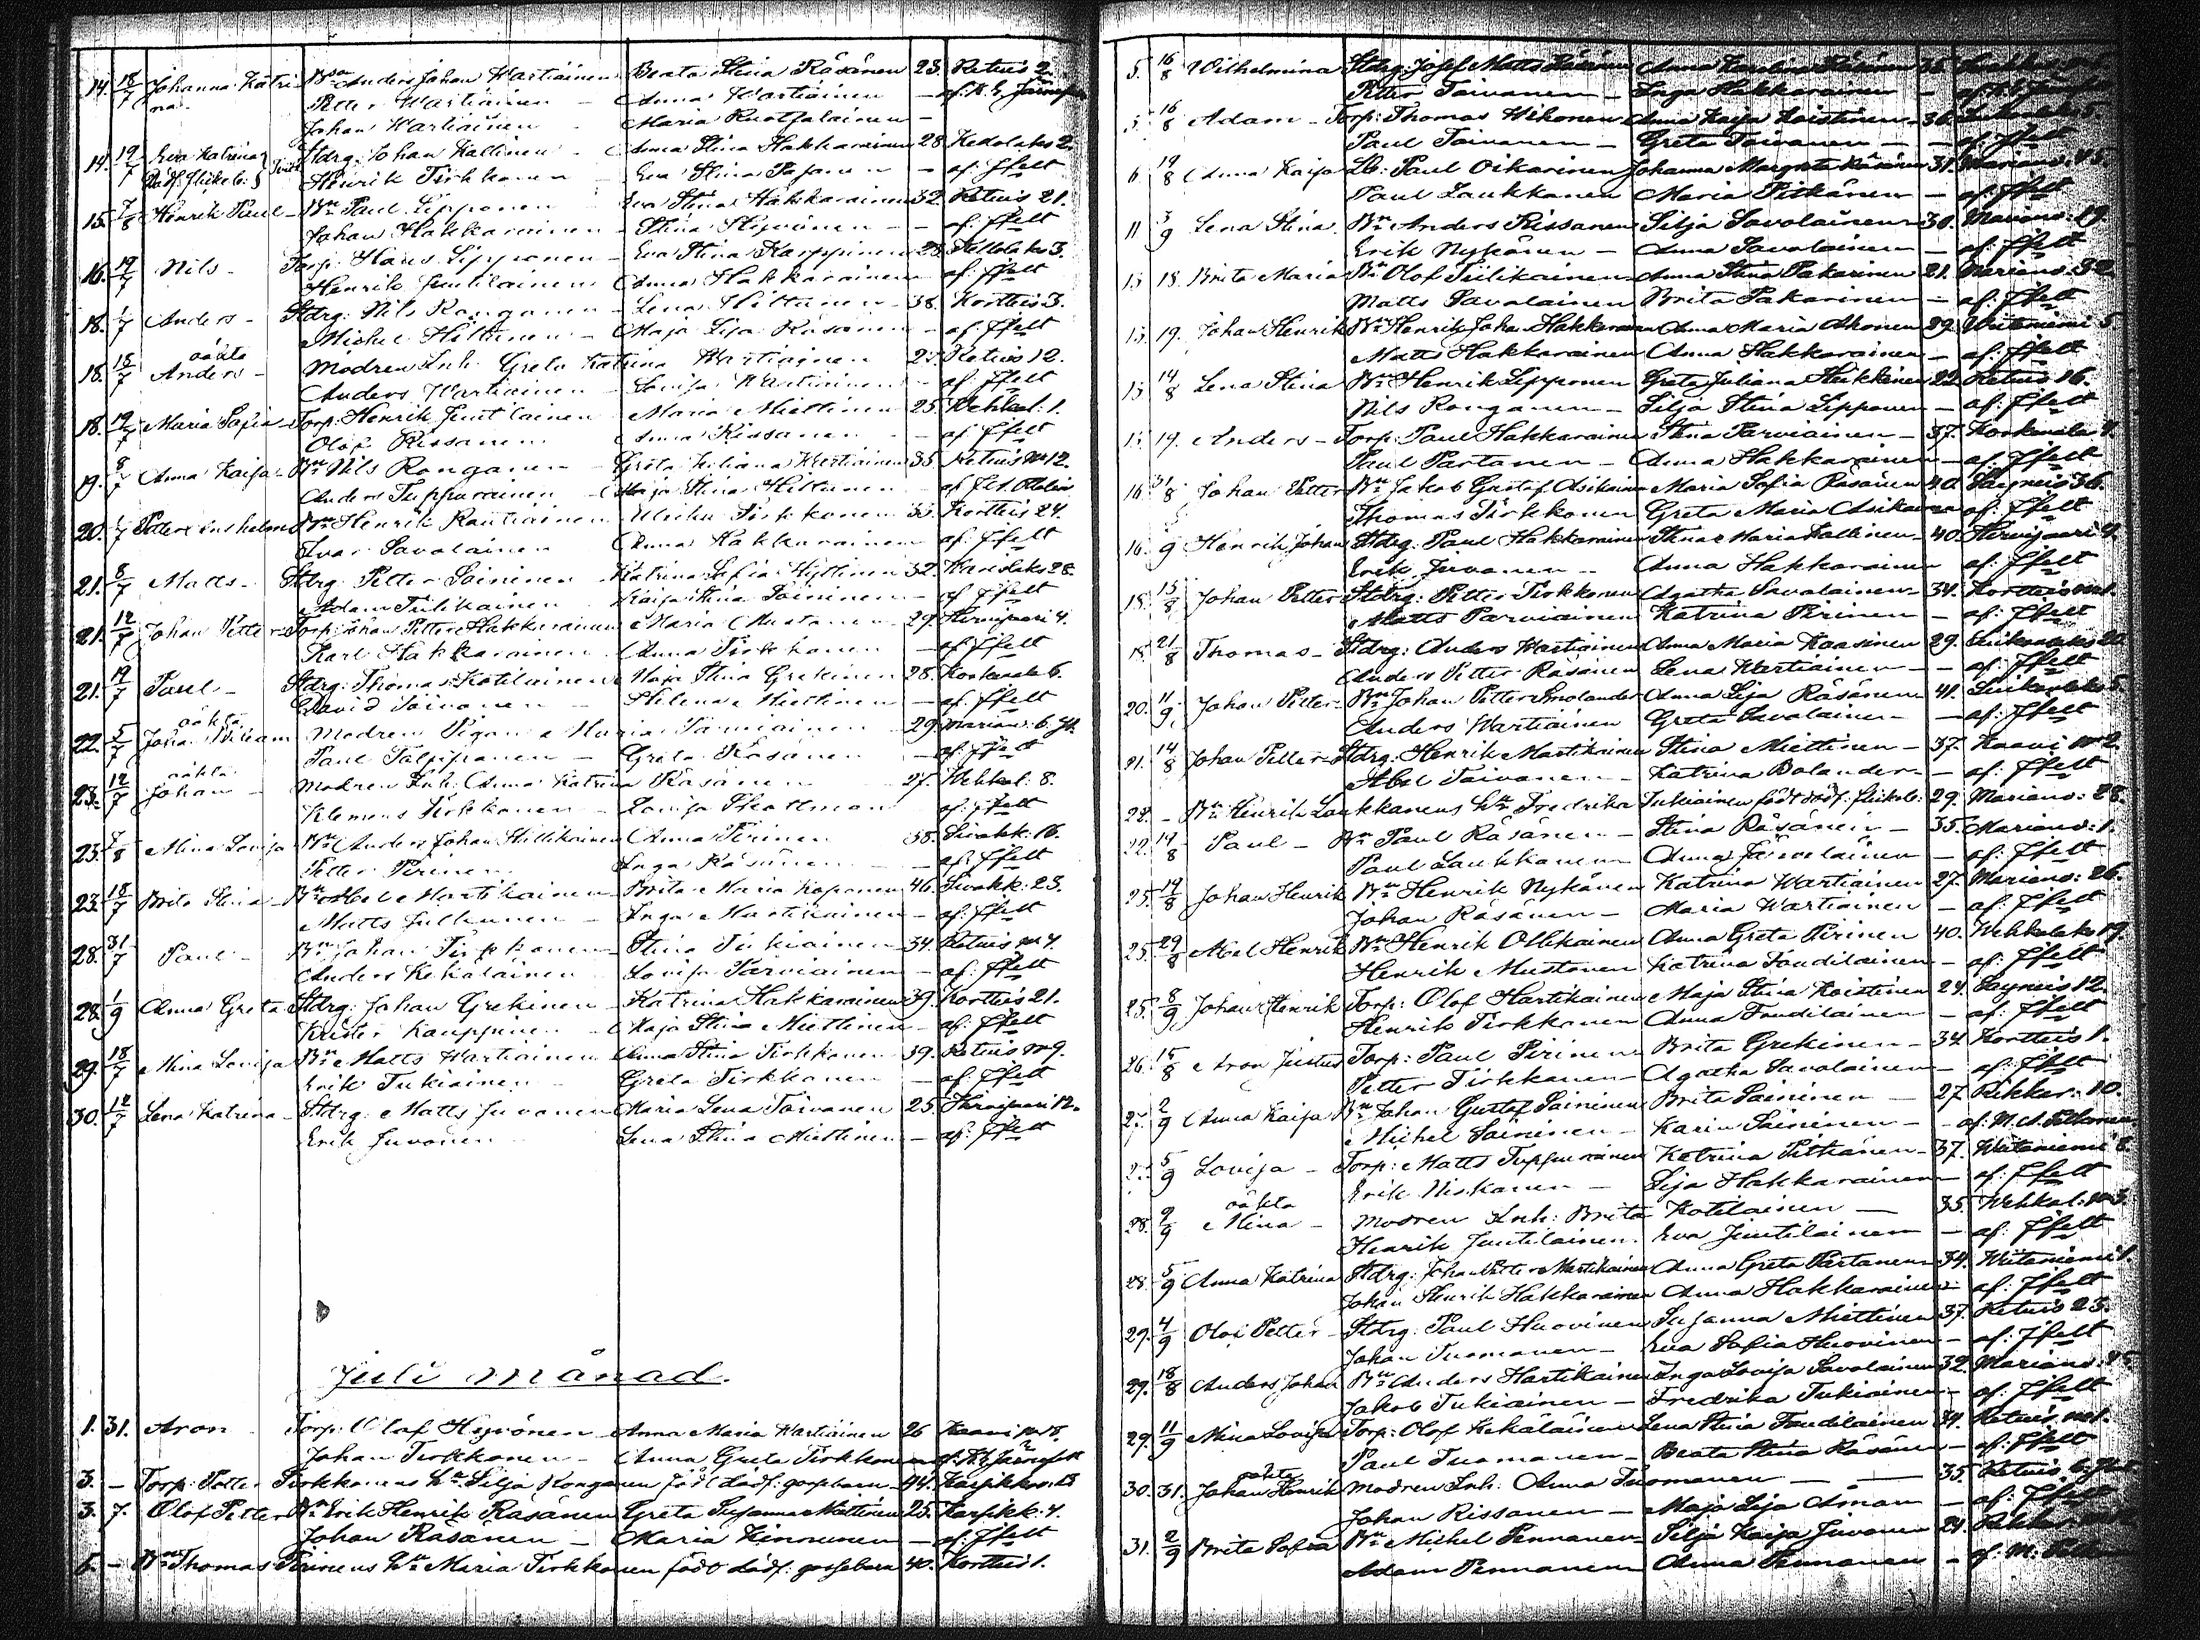 14. 18/7 Johanna Katri- Bdn Anders Johan Wartiainen Beata Stina Räsänen 23. Retuis 2.
na. Petter Wartiainen — Anna Wartiainen — af: K. E.
Johan Wartiainen Maria Ruotsalainen —
14. 19/7 Eva Katrina Stdrg: Johan Kallinen Anna Stina Hakkarainen 28 Kedolaks 2.
Dödf: flicke b: Henrik Tirkkonen Eva Stina — af: Ffelt
15. 7/8 Henrik Paul Bn Paul Lipponen Eva Stina Hakkarainen 32 Retuis 21.
Johan Hakkarainen Stina Hyvönen — af: Ffelt
16. 19/7 Nils — Torp: Hans Lipponen Eva Stina Karppinen 28
Henrik Juutilainen Anna Hakkarainen — af: Ffelt
18. 1/7 Anders — Stdrg: Nils Ronganen Lena Hiltunen 38. Kortteis 3.
Michel Hiltunen — Maja Lisa Räsänen — af Ffelt
oäkta
18. 18/7 Anders — Modren Inh: Greta Katrina Wartiainen 27. Retuis 12.
Anders Wartiainen — Lovisa Wartiainen — af: Ffelt
18. 19/7 Maria Sofia — Torp: Henrik Juutilainen Maria Miettinen 25 Wehkal: 1.
Olof Rissanen Anna Rissanen — af Ffelt
19. 8/7 Anna Kaisa — Bn Nils Ronganen — Greta Juliana Wartiainen 35 Retuis No 12.
Anders Tuppurainen — Maja Stina Hiltunen — af
20. 1/7 Petter Bn Henrik Rautiainen Ulrika Tirkkonen 33. Kortteis 24.
Ivar Savolainen Anna Hakkarainen — af: Ffelt
21. 8/7 Matts — Stdrg: Petter Soininen Katrina Sofia Hyttinen 32. 28.
Adam Tiilikainen Kaisa Stina Soininen — af Ffelt
21. 12/7 Johan Petter Torp: Johan Petter Hakkarainen Maria Mustonen 29. Hirvisaari 4.
Karl Hakkarainen Anna Tirkkonen — af Ffelt
21. 19/7 Paul — Stdrg: Thomas Kotilainen Maja Stina Grekinen 28. 6.
David Toivanen — Helena Miettinen — af: Ffelt
oäkta
22. 5/7 Johan Wiliam Modren Pigan Maria Parviainen 29. Marianv: 6.
Paul — Greta Räsänen — af: Ffelt
oäkta
23. 12/7 Johan — Modren Inh: Anna Katrina Räsänen 27. Wehkal: 8.
Klemens Tirkkonen — Lovisa — af: Ffelt
23. 7/8 Mina Lovisa Bn Anders Johan Anna Pirinen 38. Sivakk: 16.
Petter Pirinen Inga Räsänen — af: Ffelt
23. 18/7 Brita Stina — Bn Abel Martikainen Brita Maria Koponen 46. Sivakk: 23.
Matts Julkunen — Inga Martikainen — af: Ffelt
28. 31/7 Paul — Bn Johan Tirkkonen Stina Tukiainen 34. Retuis No 4.
Anders Kekäläinen Lovisa Parviainen — af: Ffelt
28. 1/9 Anna Greta Stdrg: Johan Grekinen Katrina Hakkarainen 39. Kortteis 21.
Krister Kauppinen — Maja Stina Miettinen — af: Ffelt
29. 18/7 Mina Lovisa Bn Matts Wartiainen Anna Stina Tirkkonen 39. Retuis No 9.
Erik Tukiainen Greta Tirkkonen — af: Ffelt
30. 12/7 Lena Katrina — Stdrg: Matts Juvonen Maria Lena Toivanen 25. Hirvisaari 12.
Erik Juvonen Lena Stina Miettinen — af: Ffelt
Juli månad.
1. 31. Aron Torp: Olof Hyvönen Anna Maria Wartiainen 26 Kaavi No 8.
Johan Tirkkonen — Anna Greta Tirkkonen — af: K. E.
3. — Torp: Petter Tirkkonens hu Silja Ronganen född dödf: gossebarn 44. Karsikkov: 13
3. 7. Olof Petter Bn Erik Henrik Räsänen Greta Susanna Miettinen 25. Karsikk: 4.
Johan Räsänen — Maria Kinnunen — af: Ffelt
5. — Bn Thomas Pirinens hu Maria Tirkkonen född dödf: gossebarn 40. Kortteis 1.
5. 16/8 Wilhelmina Stdrg: Josef Matts Räsänen Anna Karolina 35
Petter Toivanen — Inga Hakkarainen —
5. 16/8 Adam — Torp: Thomas Wihonen Anna Kaisa Koistinen 36. 5.
Paul Toivanen — Greta Toivanen — af: Ffelt
6. 19/8 Anna Kaisa Lb: Paul Oikarinen Johanna Margreta Räsänen 31. Marianv: 45.
Paul Laukkanen Maria Pitkänen — af: Ffelt
11 3/9 Lena Stina. Bn Anders Rissanen Silja Savolainen 30. Marianv: 19.
Erik Nykänen — Anna Savolainen — af: Ffelt
13 18. Brita Maria Bn Olof Tiilikainen Anna Stina Pakarinen 21. Marianv: 32.
Matts Savolainen Brita Pakarinen — af: Ffelt
13. 19. Johan Henrik Bn Henrik Johan Hakkarainen Anna Maria Ahonen 29. Wiitaniemi 5
Matts Hakkarainen Anna Hakkarainen — af: Ffelt
13 14/8 Lena Stina Bn Henrik Lipponen Greta Juliana Heikkinen 22. Retuis 16.
Nils Ronganen — Silja Stina Lipponen — af: Ffelt
13. 19. Anders — Torp: Paul Hakkarainen Stina Parviainen — 37. Korkeala 7.
Paul Partanen — Anna Hakkarainen — af: Ffelt
16. 31/8 Johan Petter Bn Jakob Gustaf Asikainen Maria Sofia Räsänen 40. Säyneis 36.
Thomas Tirkkonen Greta Maria Asikainen af: Ffelt
16. 5/9 Henrik Johan Stdrg: Paul Hakkarainen Stina Maria Kallinen 40. Hirvisaari 9.
Erik Juvonen — Anna Hakkarainen af: Ffelt
18. 15/8 Johan Petter Stdrg: Petter Tirkkonen Agatha Savolainen 34. Kortteis No 1.
Matts Parviainen Katrina Pirinen — af: Ffelt
18. 21/8 Thomas — Stdrg: Anders Wartiainen Anna Maria Kaasinen 29. 20
Anders Petter Räsänen Lena Wartiainen — af: Ffelt
20. 11/9 Johan Petter — Bn Johan Petter Smolander Anna Lisa Räsänen 41. 5.
Anders Wartiainen Greta Savolainen — af: Ffelt
21. 14/8 Johan Petter Stdrg: Henrik Martikainen Stina Miettinen — 37. Kaavi No 2.
Abel Toivanen — Katrina Bolander — af: Ffelt
22. — Bn Henrik Laukkanens hu Fredrika Tukiainen född dödf: flickeb: 29. Marianv: 28.
22. 14/8 Paul — Bn Paul Räsänen — Stina Räsänen — 35. Marianv: 1.
Paul Laukkanen Anna — af: Ffelt
25. 19/8 Johan Henrik Bn Henrik Nykänen Katrina Wartiainen 27. Marianv: 26.
Johan Räsänen — Maria Wartiainen — af: Ffelt
25. 29/8 Abel Henrik Bn Henrik Ollikainen Anna Greta Pirinen 40. Wehkalaks 19.
Henrik Mustonen Katrina Taudilainen — af: Ffelt
25. 8/9 Johan Henrik Torp: Olof Hartikainen Maja Stina Koistinen 24. Säyneis 12.
Henrik Tirkkonen Anna Taudilainen — af: Ffelt
26. 15/8 Aron Justus Torp: Paul Pirinen Brita Grekinen — 34 Kortteis 1.
Petter Tirkkonen — Agatha Savolainen — af: Ffelt
2/9 Anna Kaisa Bn Johan Gustaf Soininen Brita Soininen — 27 Rikkav: 10.
Michel Soininen — Karin Soininen — af: M. A. Pelkonen
5/9 Lovisa — Torp: Matts Tuppurainen Katrina Pitkänen — 37. Wiitaniemi 8.
Erik Niskanen — Lisa Hakkarainen — af: Ffelt
oäkta
28. 9/9 Mina — Modren Inh: Brita Kotilainen — 35. Wehkal: No 3.
Henrik Juutilainen. Eva Juutilainen — af: Ffelt
28. 5/9 Anna Katrina Stdrg: Johan Petter Martikainen Anna Greta Partanen 34. Wiitaniemi 1.
Johan Henrik Hakkarainen Anna Hakkarainen — af: Ffelt
29. 4/9 Olof Petter — Stdrg: Paul Huovinen Susanna Miettinen 37. Retuis 23.
Johan Tuomanen — Eva Sofia Huovinen — af: Ffelt
29. 18/8 Anders Johan Bn Anders Hartikainen Inga Lovisa Savolainen 32. Marianv: 45.
Jakob Tukiainen — Fredrika Tukiainen — af: Ffelt
29. 11/9 Mina Lovisa Torp: Olof Kekäläinen Lena Stina Taudilainen 34. Retuis No 1.
Paul Tuomanen — Beata Stina Räsänen — af: Ffelt
oäkta
30. 31. Johan Henrik Modren Inh: Anna Tuomanen — 35. Retuis
Johan Rissanen — Maja Lisa Åman — af: Ffelt
31. 2/9 Brita Sofia Bn Michel Pennanen Silja Kaija Juvonen 24.
Adam Pennanen Anna Pennanen — af: M.